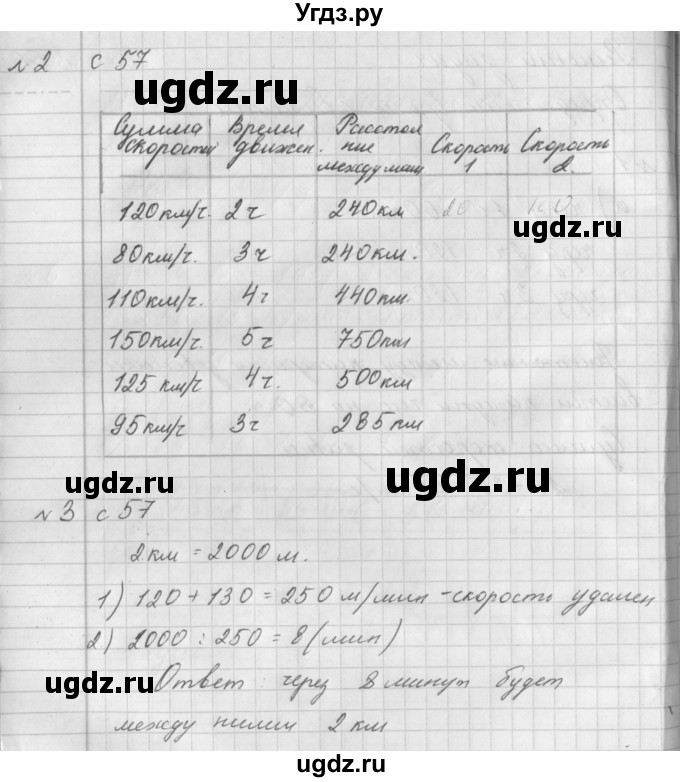 Угдз.ру
№2 с 57
ugdz.ru
Сумма скоростей | Время движен. | Расстояние между маш | Скорость 1 | Скорость 2.
120км/ч. 2ч 240км
ugdz.ru
80км/ч. 3ч 240км.
110км/ч. 4ч 440км
150км/ч. 5ч 750км
ugdz.ru
125 км/ч 4ч. 500км
95км/ч 3ч 285км
ugdz.ru ugdz.ru
№3 с 57
2км = 2000м.
1) 120 + 130 = 250 м/мин - скорость удален
2) 2000 : 250 = 8 (мин)
ugdz.ru
Ответ через 8 минут будет
ugdz.ru
между ними 2 км
ugdz.ru
Угдз.ру